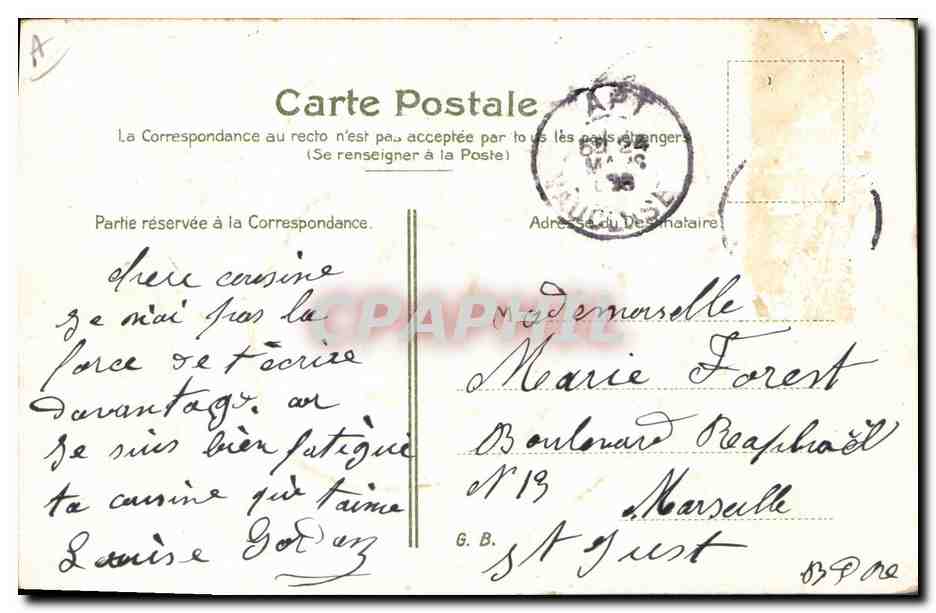 A
Carte Postale
La Correspondance au recto n'est pas acceptée par tous les pays étrangers
(Se renseigner à la Poste)
APT
24
MARS
VAUCLUSE
Partie réservée à la Correspondance.
Adresse du Destinataire
chere cousine
je n'ai pas la
force de t'écrire
davantage. car
je suis bien fatigué
ta cousine qui t'aime
Louise
CPAPHIL
Mademoiselle
Marie Forest
Boulevard Raphaël
N 13
Marseille
St Just
G. B.